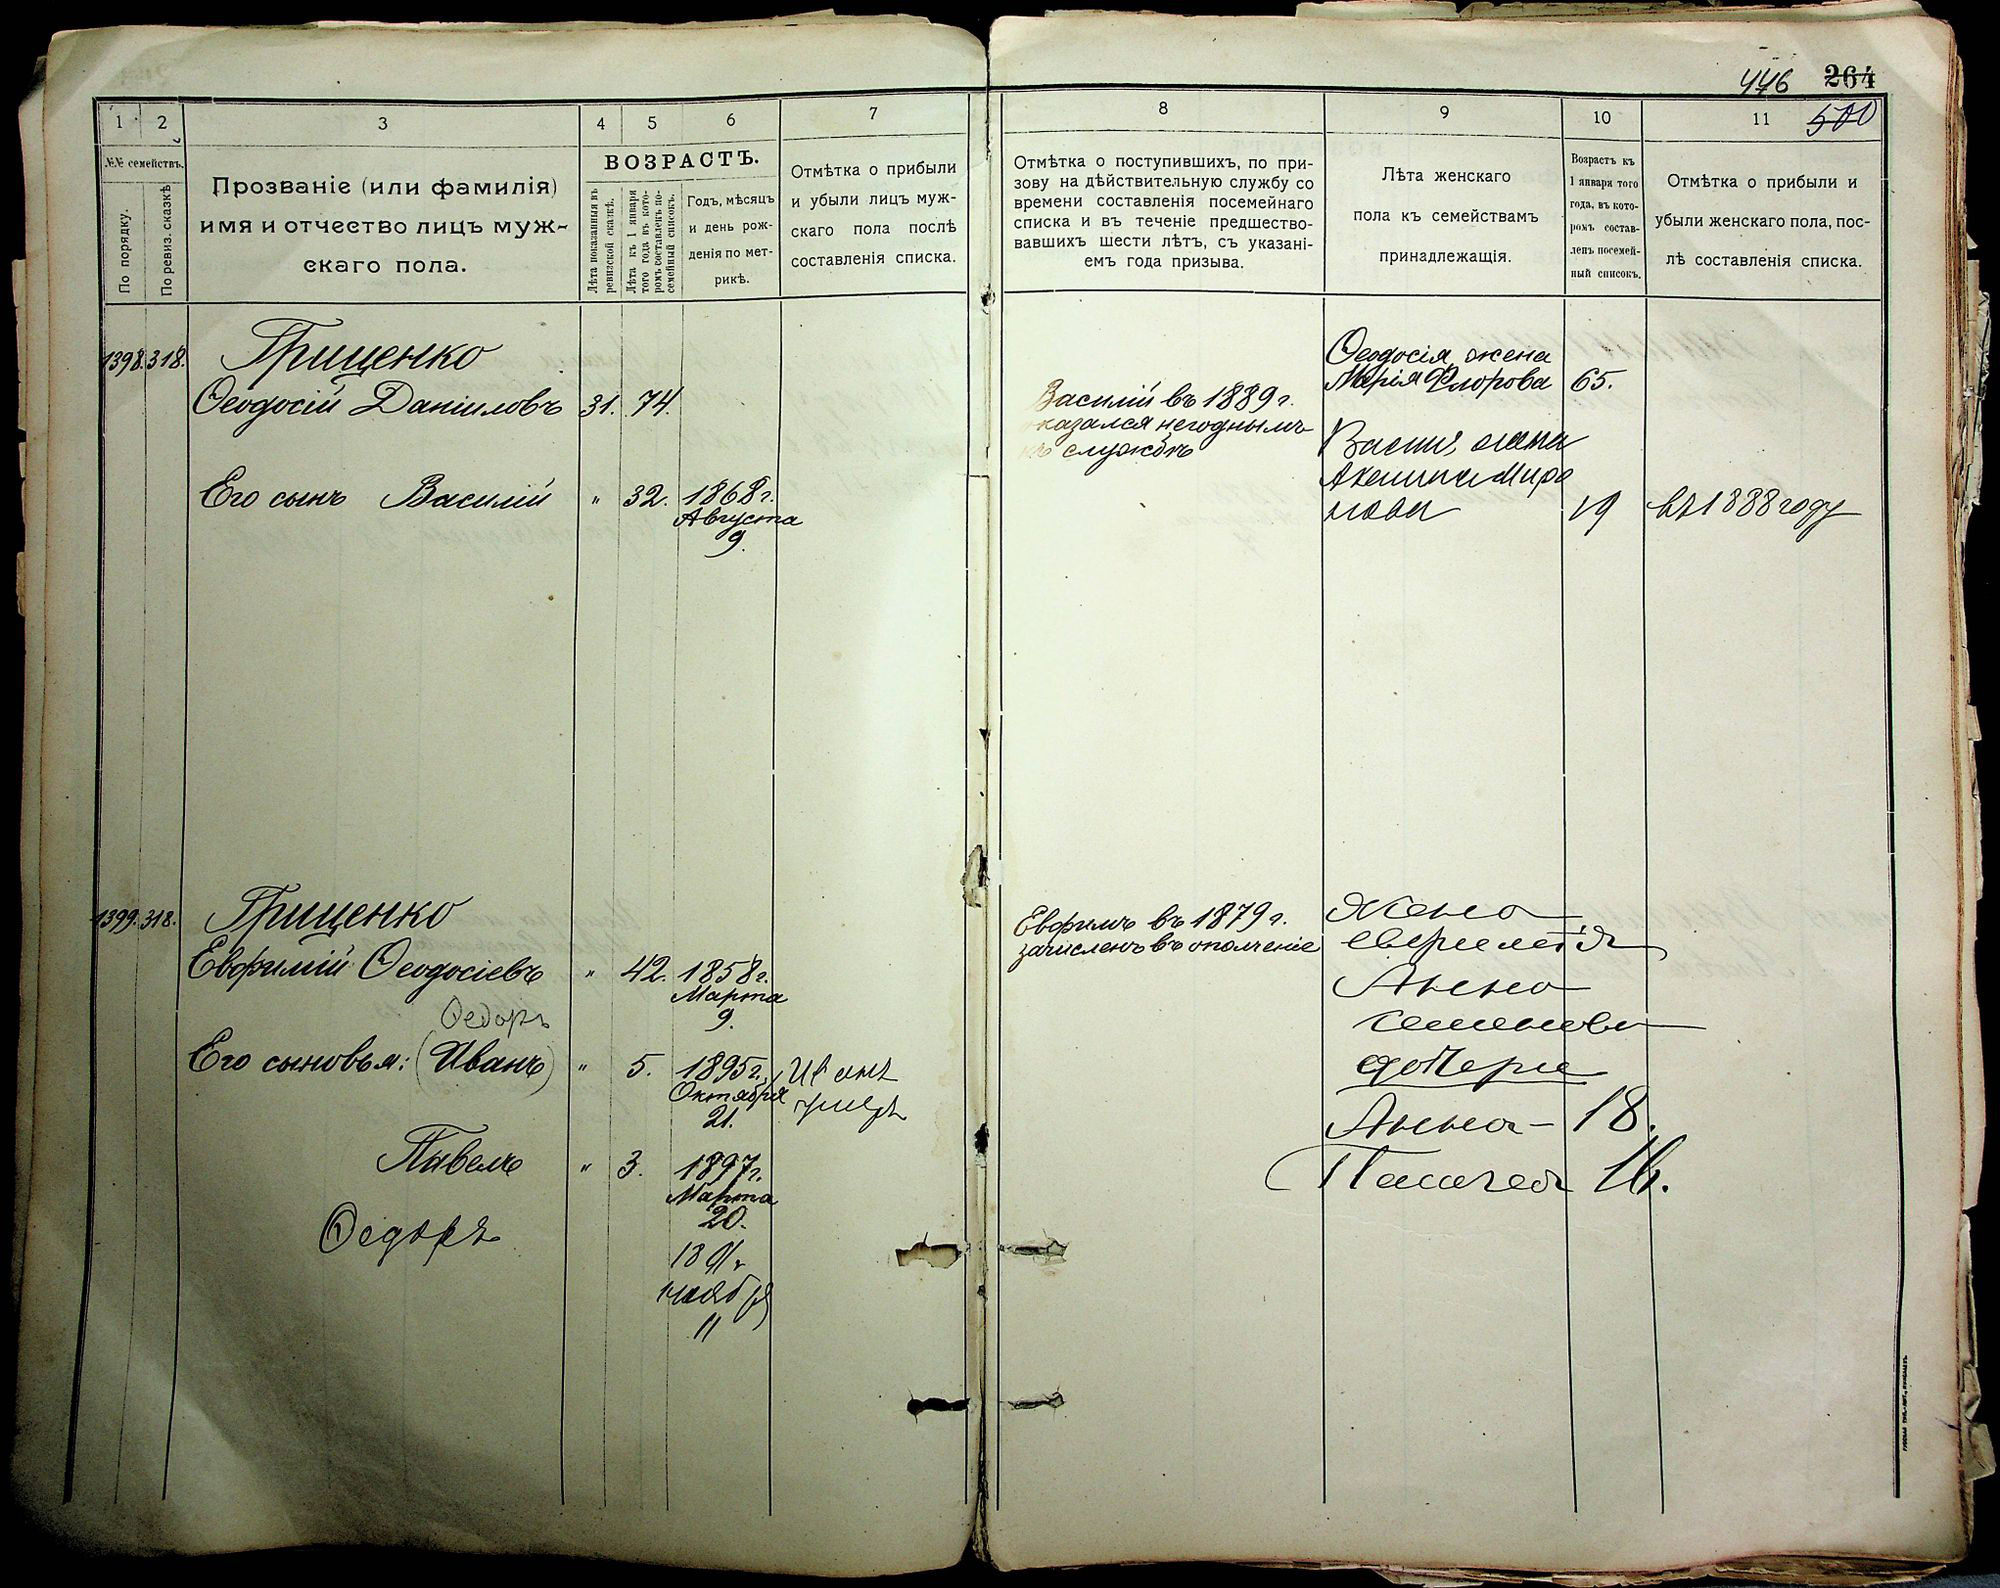 446 264
500
1 2 3 4 5 6 7
№№ семействъ.
По порядку.
По ревиз. сказкѣ
Прозваніе (или фамилія)
имя и отчество лицъ муж-
скаго пола.
ВОЗРАСТЪ.
Лѣта показанныя въ
ревизской сказкѣ.
Лѣта къ 1 января
того года въ кото-
ромъ составленъ по-
семейный списокъ.
Годъ, мѣсяцъ
и день рож-
денія по мет-
рикѣ.
Отмѣтка о прибыли
и убыли лицъ муж-
скаго пола послѣ
составленія списка.
1398. 318. Гриценко
Ѳеодосій Даніиловъ 31. 74.
Его сынъ Василій " 32. 1868 г.
Августа
9.
1399. 318. Гриценко
Евфимій Ѳеодосіевъ " 42. 1858 г.
Марта
9.
Ѳедоръ
Его сыновья: (Иванъ) " 5. 1895 г.
Октября
21.
Иванъ
Павелъ " 3. 1897 г.
Марта
20.
Ѳедоръ
ноября
11
8 9 10 11
Отмѣтка о поступившихъ, по при-
зову на дѣйствительную службу со
времени составленія посемейнаго
списка и въ теченіе предшество-
вавшихъ шести лѣтъ, съ указані-
емъ года призыва.
Лѣта женскаго
пола къ семействамъ
принадлежащія.
Возрастъ къ
1 января того
года, въ кото-
ромъ состав-
ленъ посемей-
ный списокъ.
Отмѣтка о прибыли и
убыли женскаго пола, пос-
лѣ составленія списка.
Ѳеодосія жена
Марія Флорова 65.
Василій въ 1889 г.
оказался негоднымъ
къ службѣ
Васил. жена
Акилина Миро
нова 19 въ 1888 году
Евфимъ въ 1879 г.
зачисленъ въ ополченіе
Жена
Анна
Семенова
дочери
Анна - 18.
Пелагея 16.